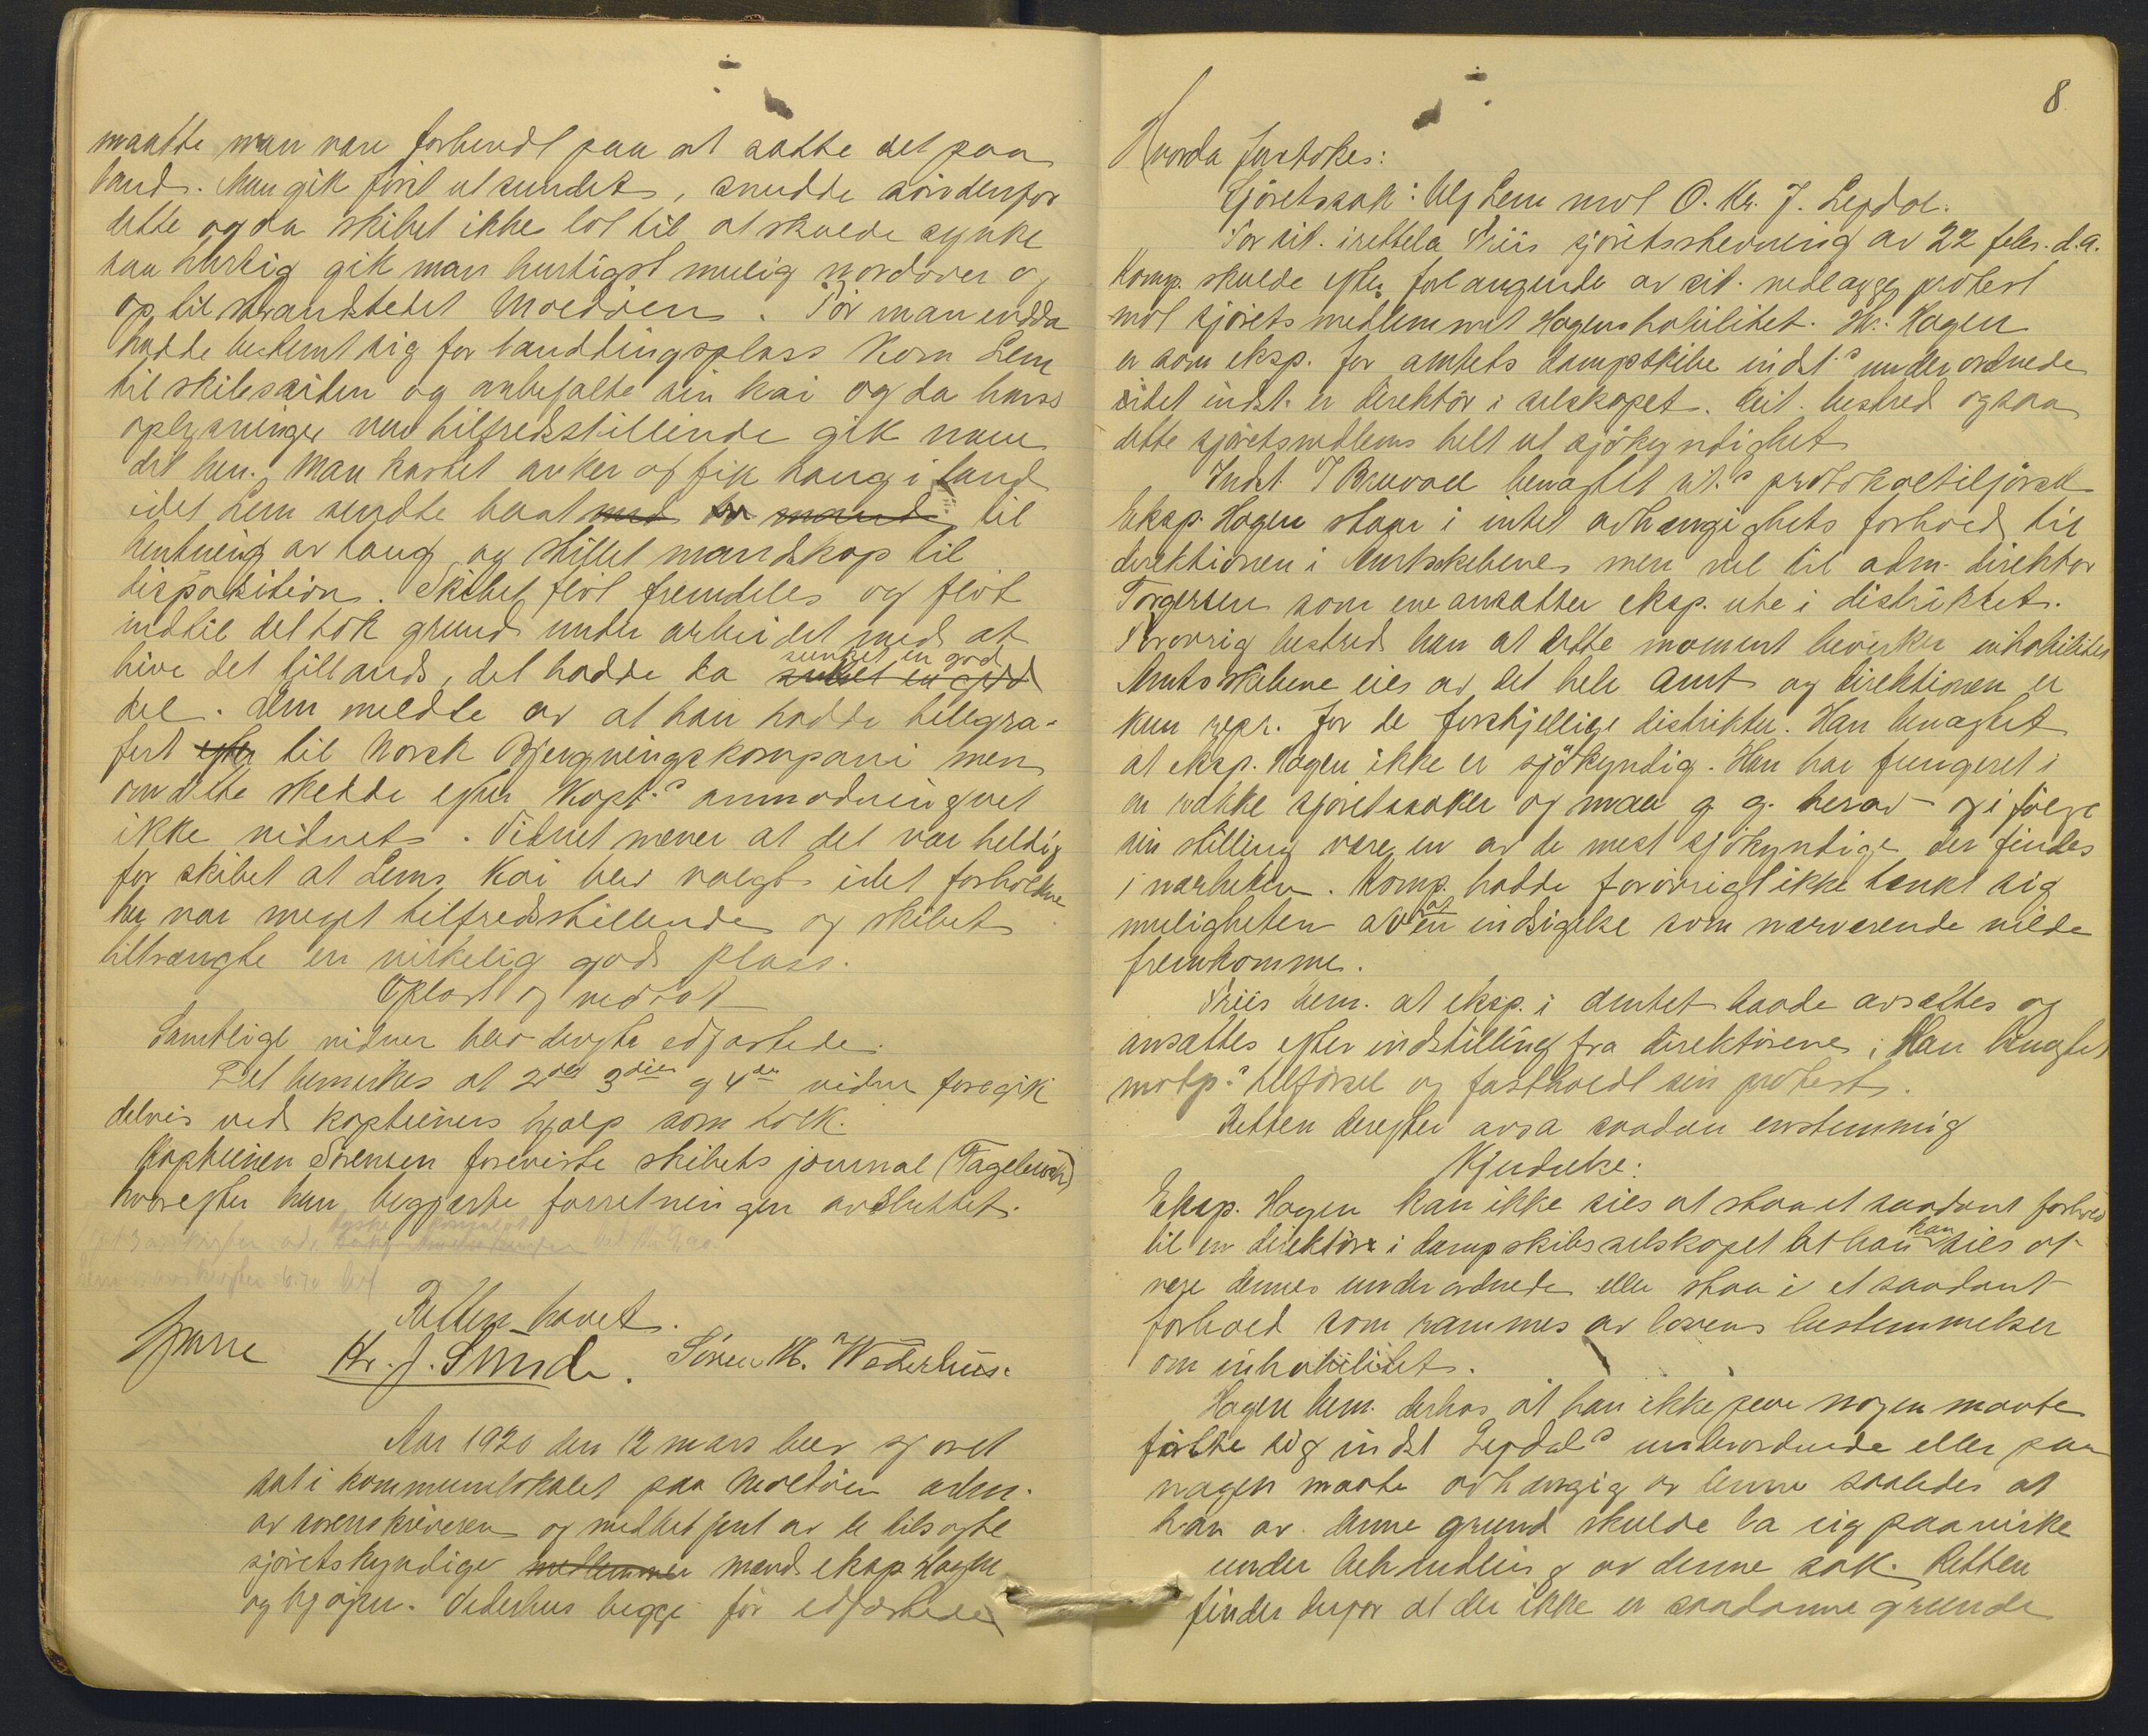 maatte man være forberedt paa at sætte det paa
land. Man gik först ut sundet, snudde söndenfor
dette og da skibet ikke lot til at skulde synke
saa hurtig gik man hurtigst mulig nordover og
op til strandstedet Moldöen. För man endda
hadde bestemt sig for landingsplass kom Lem
til skibssiden og anbefalte sin kai og da hans
oplysninger var tilfredsstillende gik man
dit hen. Man kastet anker og fik taug i land
idet Lem sendte baat med to mand til
hentning av taug og stillet mandskap til
disposition. Skibet flöt fremdeles og flöt
indtil det tok grund under arbeidet med at
hive det tillands, det hadde da sunket en god
del. Lem meldte av at han hadde tellegra-
fert efter til Norsk Bjergningskompani men
om dette skedde efter Kapt.s anmodning vet
ikke vidnet. Vidnet mener at det var heldig
for skibet at Lems Kai blev valgt idet forholdene
her var meget tilfredsstillende og skibet
tiltrængte en virkelig god plass.
Oplæst og vedtat
Samtlige vidner blev derefter edfæstede.
Det bemerkes at 2det 3die og 4de vidne foregik
delvis ved kapteinens hjælp som tolk.
Kapteinen Sörensen foreviste skibets journal (Tagebuch)
hvorefter han begjærte forretningen avsluttet.
tyske konsulat
Retten hævet.
Kr. J. Smide. Sören M. Wederhus.
Aar 1920 den 12 mars blev sjöret
sat i kommunelokalet paa Moldöen adm.
av sorenskriveren og medbetjent av de tilsagte
sjöretskyndige medlemmer mænd eksp Hagen
og kjöpm. Vederhus begge för edfæstede
8
Hvorda foretokes:
Sjöretssak: Alf Lem mot O. Kr. J. Lepdal.
For cit. irettela Friis sjöretsstevning av 22 febr. d.a.
Komp. skulde efter forlangende av cit. nedlægge protest
mot sjöretsmedlemmet Hagens habilitet. Hr. Hagen
er som eksp. for amtets dampskibe indst.s underordnede
idet indst. er direktör i selskapet. Cit. bestred ogsaa
dette sjöretsmedlems helt ut sjökyndighet
Indst. benægtet cit.s protokoltilförsel
Eksp. Hagen staar i intet avhængighets forhold til
direktionen i Amtsskibene men vel til adm. direktör
Torgersen som ene ansætter eksp. ute i distriktet.
Forövrig bestred han at dette moment bevirker inhabilitet
Amtsskibene eies av det hele amt og direktionen er
kun repr. for de forskjellige distrikter. Han benægtet
at eksp. Hagen ikke er sjökyndig. Han har fungeret i
en række sjöretssaker og maa p. g. herav – og i fölge
sin stilling være en av de mest sjökyndige der findes
i nærheten. Komp. hadde forövrigt ikke tænkt sig
muligheten av at en indsigelse som nærværende vilde
fremkomme.
Friis bem. at eksp. i amtet baade avsættes og
ansættes efter indstilling fra direktörene; Han benægtet
motp.s tilförsel og fastholdt sin protest.
Retten derefter avsa saadan enstemmig
Kjendelse:
Eksp. Hagen kan ikke sies at staa et saadant forhold
til en direktör i dampskibsselskapet at han kan sies at
være dennes underordnede eller staa i et saadant
forhold som rammes av lovens bestemmelser
om inhabilitet.
Hagen bem. derhos at han ikke paa nogen maate
fölte sig indst Lepdals underordnede eller paa
nogen maate avhængig av denne saaledes at
han av denne grund skulde la sig paavirke
under behandling av denne sak. Retten
finder derfor at der ikke er saadanne grunde